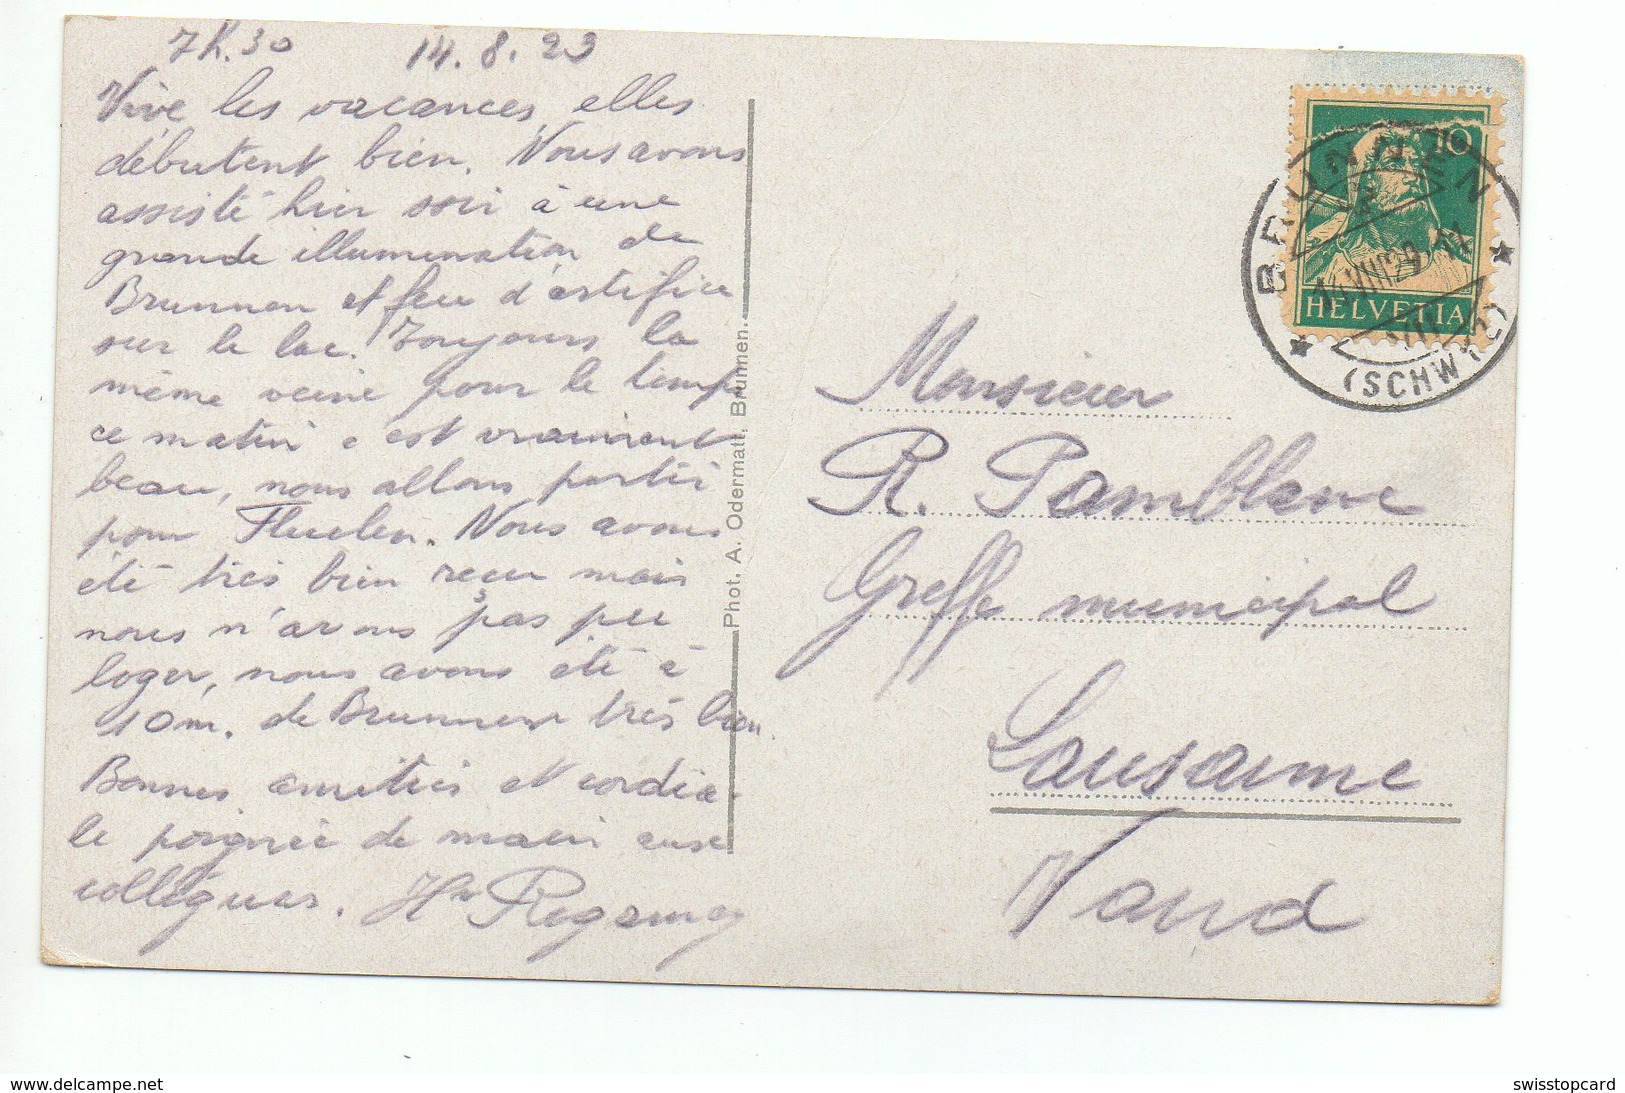 7h.30 14.8.29
Vive les vacances, elles
débutent bien. Nous avons
assisté hier soir à une
grande illumination de
Brunnen et feu d'artifice
sur le lac. Toujours la
même veine pour le temps
ce matin c est vraiment
beau, nous allons partir
pour Fluelen. Nous avons
été très bien reçu mais
nous n'avons pas pu
loger, nous avons été à
10 m. de Brunnen très bien.
Bonnes amitiés et cordia-
le poignée de main aux
collègues. Hri Regamey
Phot. A. Odermatt, Brunnen.
Monsieur
R. Pamblanc
Greffe municipal
Lausanne
Vaud
10
HELVETIA
BRUNNEN
14.VIII.29
(SCHWYZ)
www.delcampe.net
swisstopcard